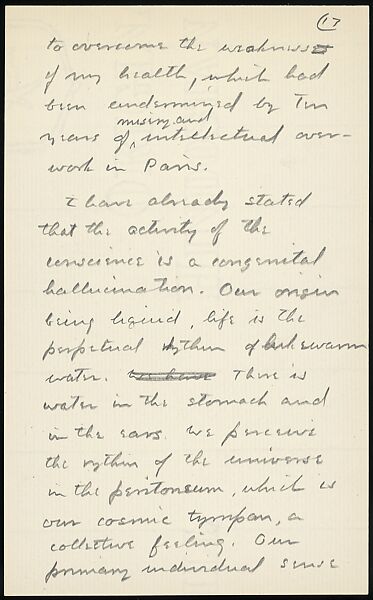 17
to overcome the weakness
of my health, which had
been undermined by Ten
misery and
years of intellectual over-
work in Paris.
I have already stated
that the activity of the
conscience is a congenital
hallucination. Our origin
being liquid, life is the
perpetual rythm of lukewarm
water. we have There is
water in the stomach and
in the ears. we perceive
the rythm of the universe
in the peritoneum, which is
our cosmic tympan, a
collective feeling. Our
primary individual sense